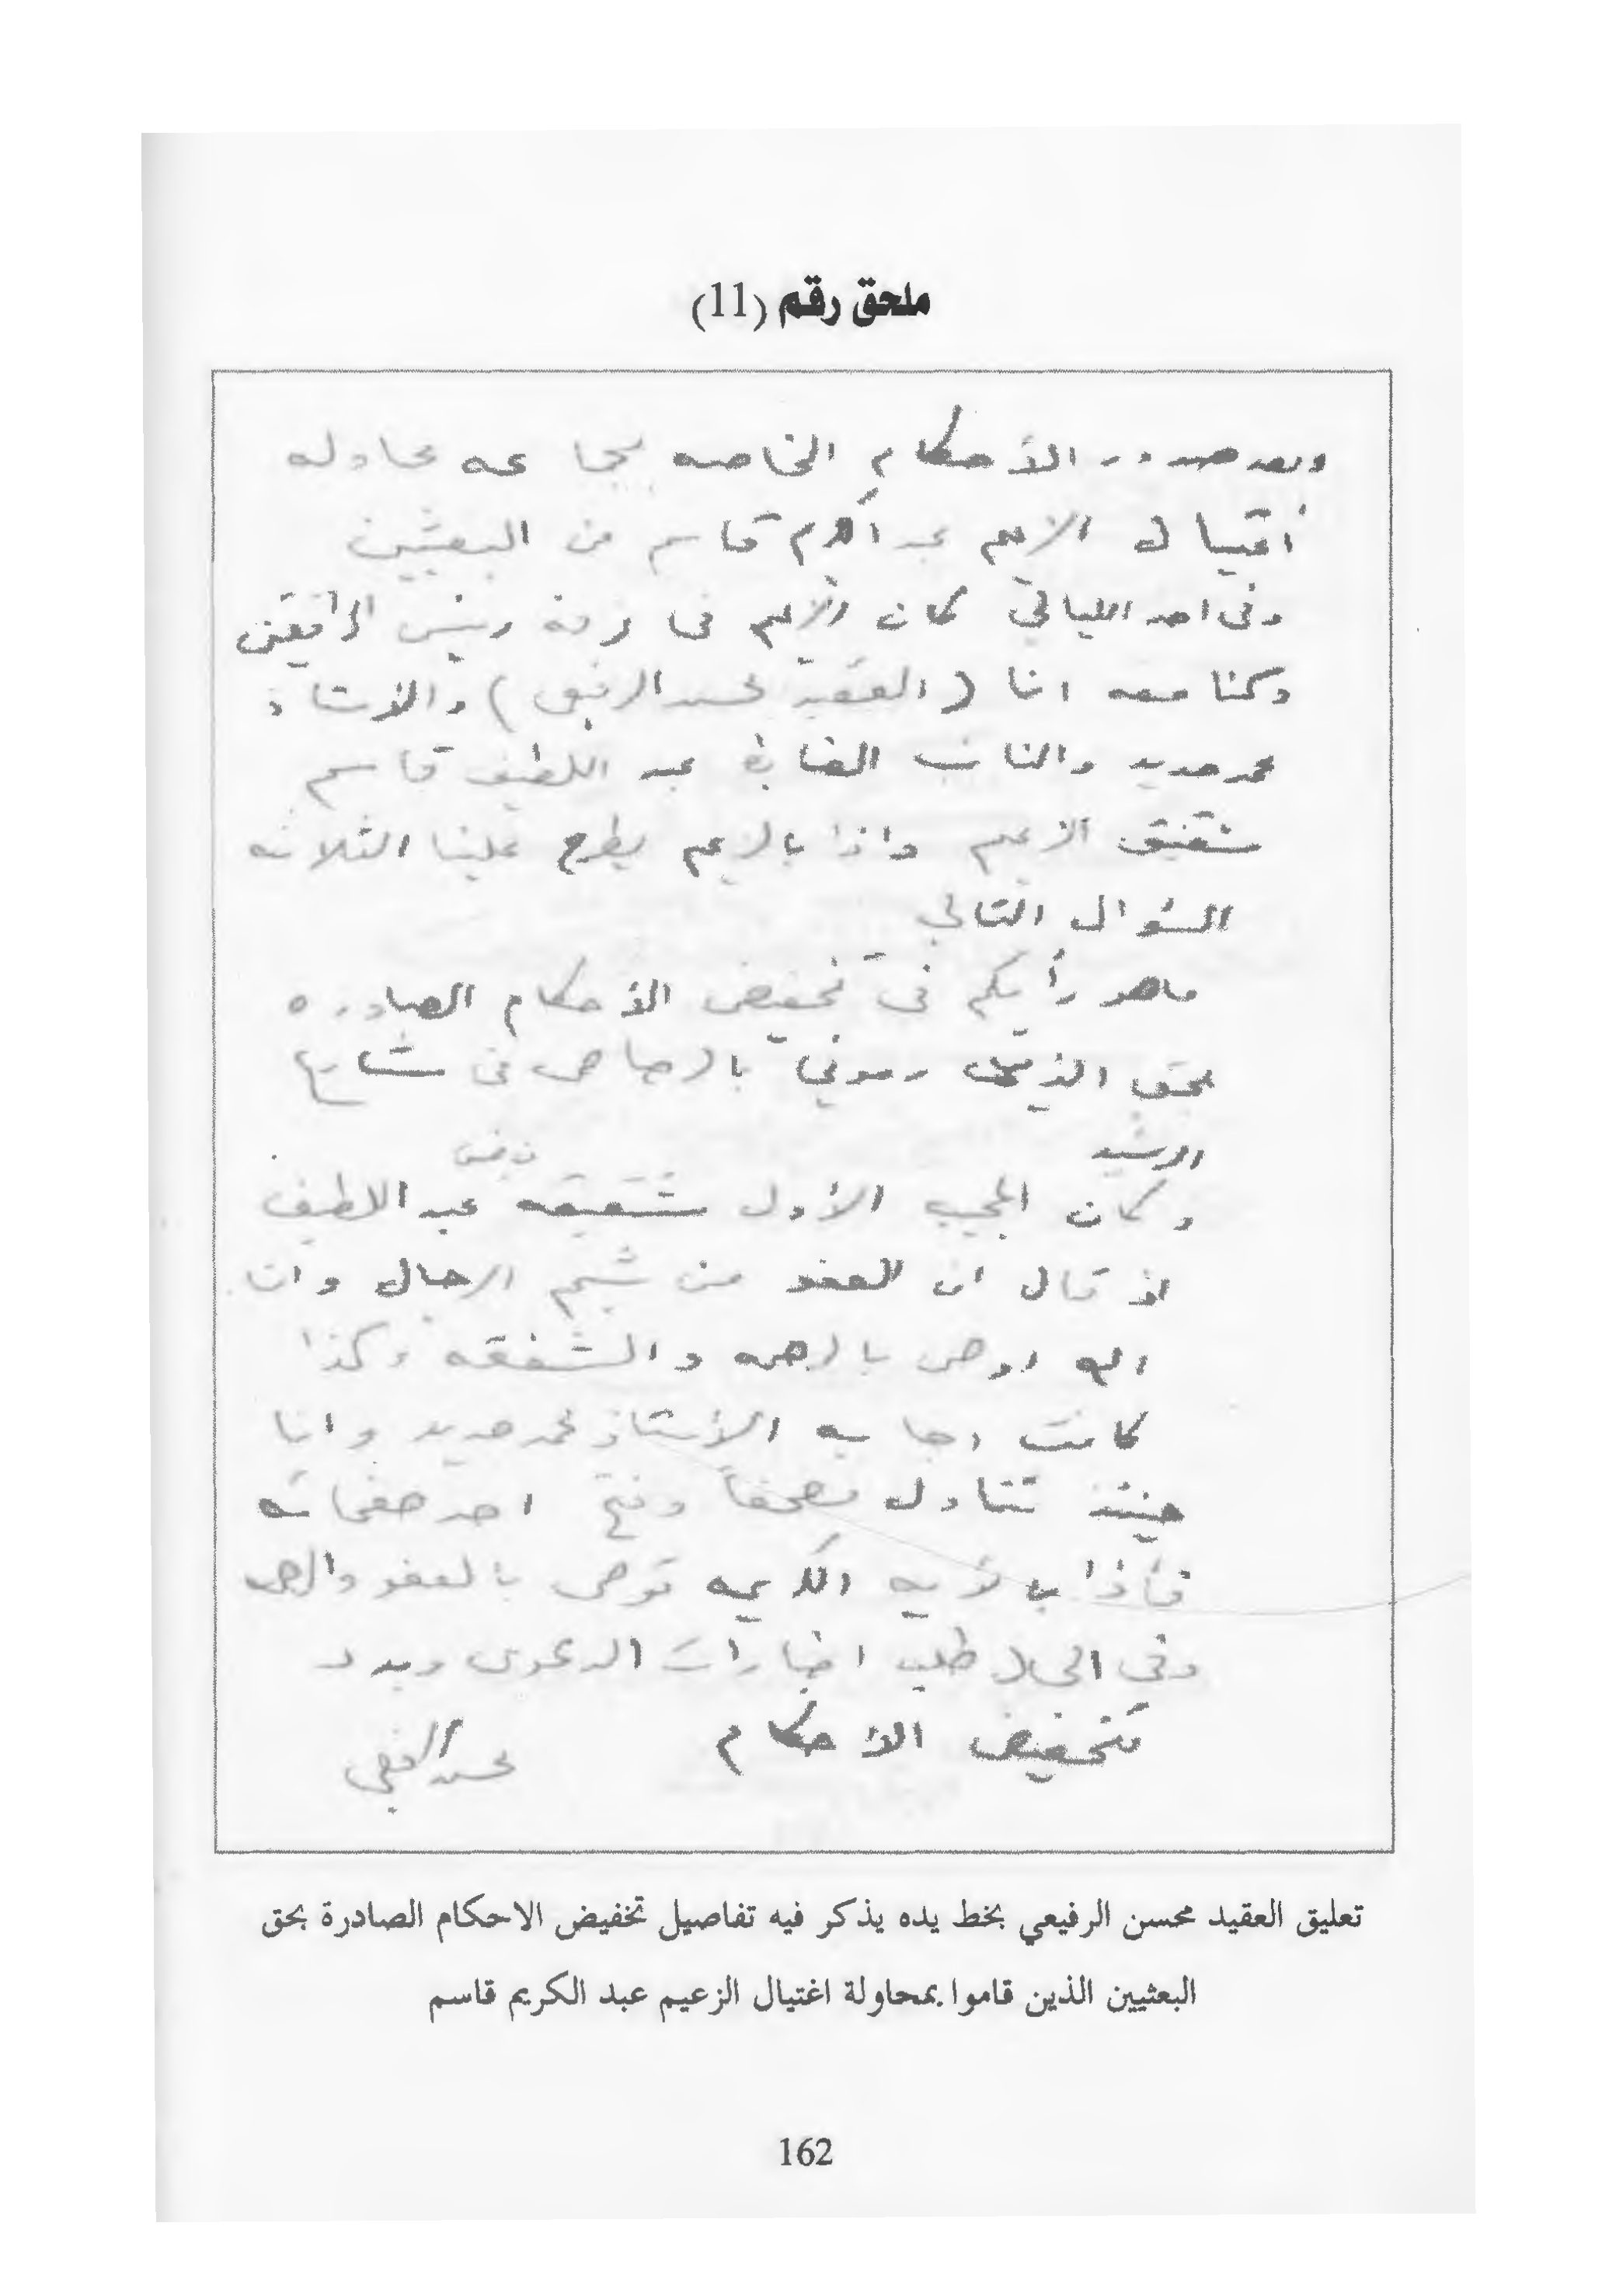 ملحق رقم (11)
وبعد صدور الأحكام الخاصه بجماعه محاوله
أغتيال الزعيم عبد الكريم قاسم من البعثيين
وفي احد الليالي كان الزعيم في غرفة رئيس المرافقين
وكنا معه انا (العقيد محسن الرفيعي) والأستاذ
محمد حديد والنائب الضابط عبد اللطيف قاسم
شقيق الزعيم واذا بالزعيم يطرح علينا الثلاثه
السؤال التالي
ماهو رأيكم في تخفيض الأحكام الصادره
بحق الذين رموني بالرصاص في شارع
الرشيد
وكان المجيب الأول شقيقه عبد اللطيف
اذ قال ان العفو من شيم الرجال وان
الله اوصى بالرحمه والشفقه وكذا
كانت اجابه الأستاذ محمد حديد وانا
حينئذ تناول مصحفاً وفتح احد صفحاته
فأذا بالأيه الكريمه توصي بالعفو والرحمه
وفي الحال طلب اضبارات الدعوى وبدد
تخفيض الأحكام
محسن الرفيعي
تعليق العقيد محسن الرفيعي بخط يده يذكر فيه تفاصيل تخفيض الاحكام الصادرة بحق
البعثيين الذين قاموا بمحاولة اغتيال الزعيم عبد الكريم قاسم
162